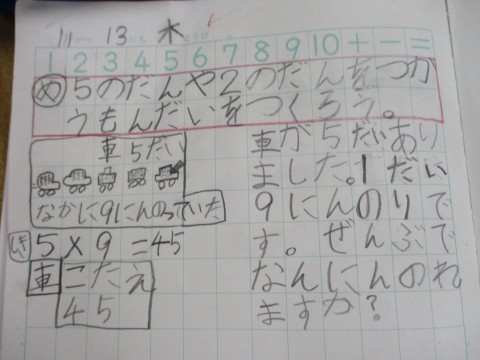 11 13 木
1 2 3 4 5 6 7 8 9 10 + - =
め 5のだんや2のだんをつか
うもんだいをつくろう。
車5だい
なかに9にんのっていた
しき 5×9=45
車 こたえ
45
車が5だいあり
ました。1だいに
9にんのりで
す。ぜんぶで
なんにんのれ
ますか?